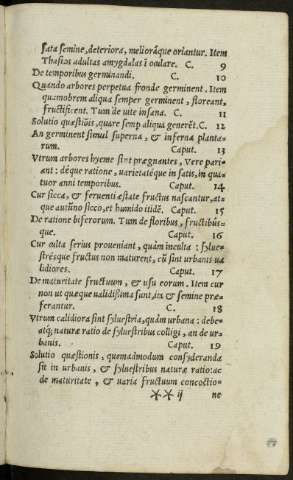 sata semine, deteriora, melioráque oriantur. Item
Thasios adultas amygdalas ĩoculare. C. 9
De temporibus germinandi. C. 10
Quando arbores perpetua fronde germinent. Item
quamobrem aliqua semper germinent, floreant,
fructificent. Tum de uite insana. C. 11
Solutio quæstiũis, quare semp aliqua generẽt. C. 12
An germinent simul superna, & inferna planta-
rum. Caput. 13
Vtrum arbores hyeme sint prægnantes, Vere pari-
ant: déque ratione, uarietatéque in satis, in qua-
tuor anni temporibus. Caput. 14
Cur siccæ, & feruenti æstate fructus nascantur, at-
que autũno sicco, et humido itidẽ. Caput. 15
De ratione biferorum. Tum de floribus, fructibús-
que. Caput. 16
Cur culta serius proueniant, quàm inculta: sylue-
strésque fructus non maturent, cũ sint urbanis ua
lidiores. Caput. 17
De maturitate fructuum, & usu eorum. Item cur
non ut quæque ualidissima sunt, ita & semine præ-
ferantur. C. 18
Vtrum calidiora sint syluestria, quàm urbana: debe-
atq; naturæ ratio de syluestribus colligi, an de ur-
banis. Caput. 19
Solutio quæstionis, quemadmodum consyderanda
sit in urbanis, & syluestribus naturæ ratio: ac
de maturitate, & uaria fructuum concoctio-
** ij ne